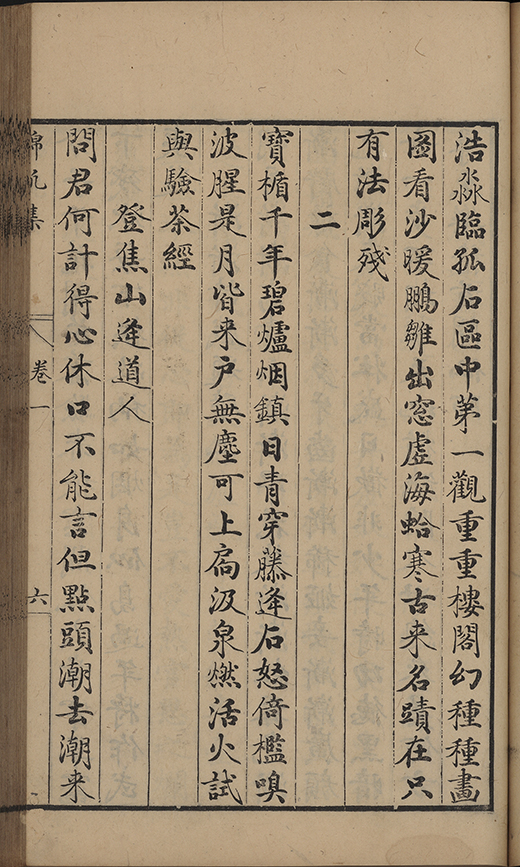 浩淼臨孤石區中第一觀重重樓閣幻種種畫
圖看沙暖鵬雛出窓虛海蛤寒古来名蹟在只
有法彫殘
二
寶楯千年碧爐烟鎮日青穿藤逄石怒倚檻嗅
波腥是月皆来户無塵可上扄汲泉燃活火試
與驗茶經
登焦山逄道人
問君何計得心休口不能言但點頭潮去潮来
集
卷一
六